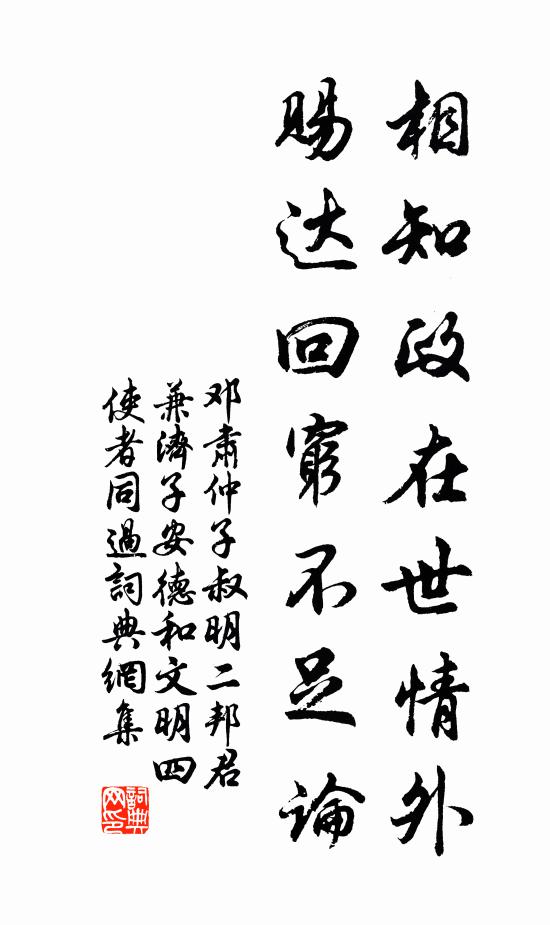 相知政在世情外
赐达回穷不足论
邓肃仲子叔明二邦君
兼濟子安德和文明四
使者同過詞典網集
詞典网印